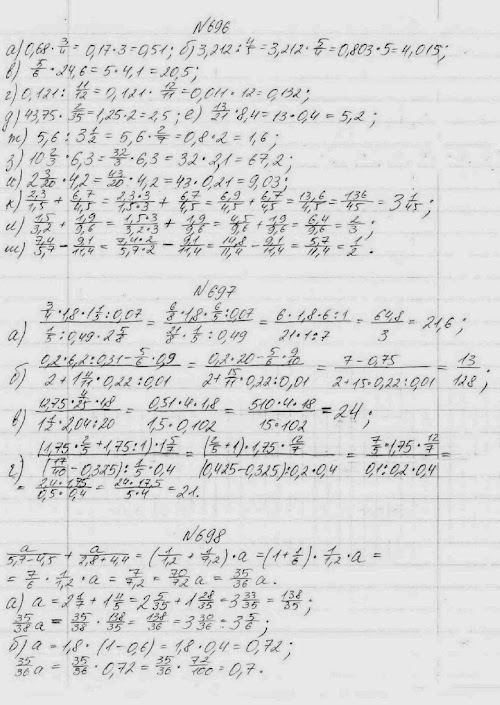 N696
а) 0,68·3/4 = 0,17·3 = 0,51; б) 3,212:4/5 = 3,212·5/4 = 0,803·5 = 4,015;
в) 5/6·24,6 = 5·4,1 = 20,5;
г) 0,121:11/12 = 0,121·12/11 = 0,011·12 = 0,132;
д) 43,75·2/35 = 1,25·2 = 2,5; е) 13/21·8,4 = 13·0,4 = 5,2;
ж) 5,6:3 1/2 = 5,6·2/7 = 0,8·2 = 1,6;
з) 10 2/3·6,3 = 32/3·6,3 = 32·2,1 = 67,2;
и) 2 3/20·4,2 = 43/20·4,2 = 43·0,21 = 9,03;
к) 2,3/1,5 + 6,7/4,5 = 2,3·3/1,5·3 + 6,7/4,5 = 6,9/4,5 + 6,7/4,5 = 13,6/4,5 = 136/45 = 3 1/45;
л) 1,5/3,2 + 1,9/9,6 = 1,5·3/3,2·3 + 1,9/9,6 = 4,5/9,6 + 1,9/9,6 = 6,4/9,6 = 2/3;
м) 7,4/5,7 - 9,1/11,4 = 7,4·2/5,7·2 - 9,1/11,4 = 14,8/11,4 - 9,1/11,4 = 5,7/11,4 = 1/2.
N697
а) (3/4·1,8·1 1/5:0,07)/(1/5:0,49·2 5/8) = (6/8·1,8·6/5:0,07)/(21/8·1/5:0,49) = (6·1,8·6:1)/(21·1:7) = 64,8/3 = 21,6;
б) (0,2·6,2:0,31-5/6·0,9)/(2+1 4/11·0,22:0,01) = (0,2·20-5/6·9/10)/(2+15/11·0,22:0,01) = (7-0,75)/(2+15·0,22:0,01) = 13/128;
в) (12,75·4/25·18)/(1 1/2·2,04:20) = (0,51·4·1,8)/(1,5·0,102) = (510·4·18)/(15·102) = 24;
г) ((1,75·2/5+1,75:1)·1 5/7)/((17/40-0,325):1/5·0,4) = ((2/5+1)·1,75·12/7)/((0,425-0,325):0,2·0,4) = (7/5·1,75·12/7)/(0,1:0,2·0,4) =
= (2,4·1,75)/(0,5·0,4) = (24·17,5)/(5·4) = 21.
N698
a/(5,7-4,5) + a/(2,8+4,4) = (1/1,2 + 1/7,2)·a = (1+1/6)·1/1,2·a =
= 7/6·1/1,2·a = 7/7,2 a = 70/72 a = 35/36 a.
а) a = 2 1/7 + 1 4/5 = 2 5/35 + 1 28/35 = 3 33/35 = 138/35;
35/38 a = 35/38·138/35 = 138/36 = 3 30/36 = 3 5/6;
б) a = 1,8·(1-0,6) = 1,8·0,4 = 0,72;
35/36 a = 35/36·0,72 = 35/36·72/100 = 0,7.